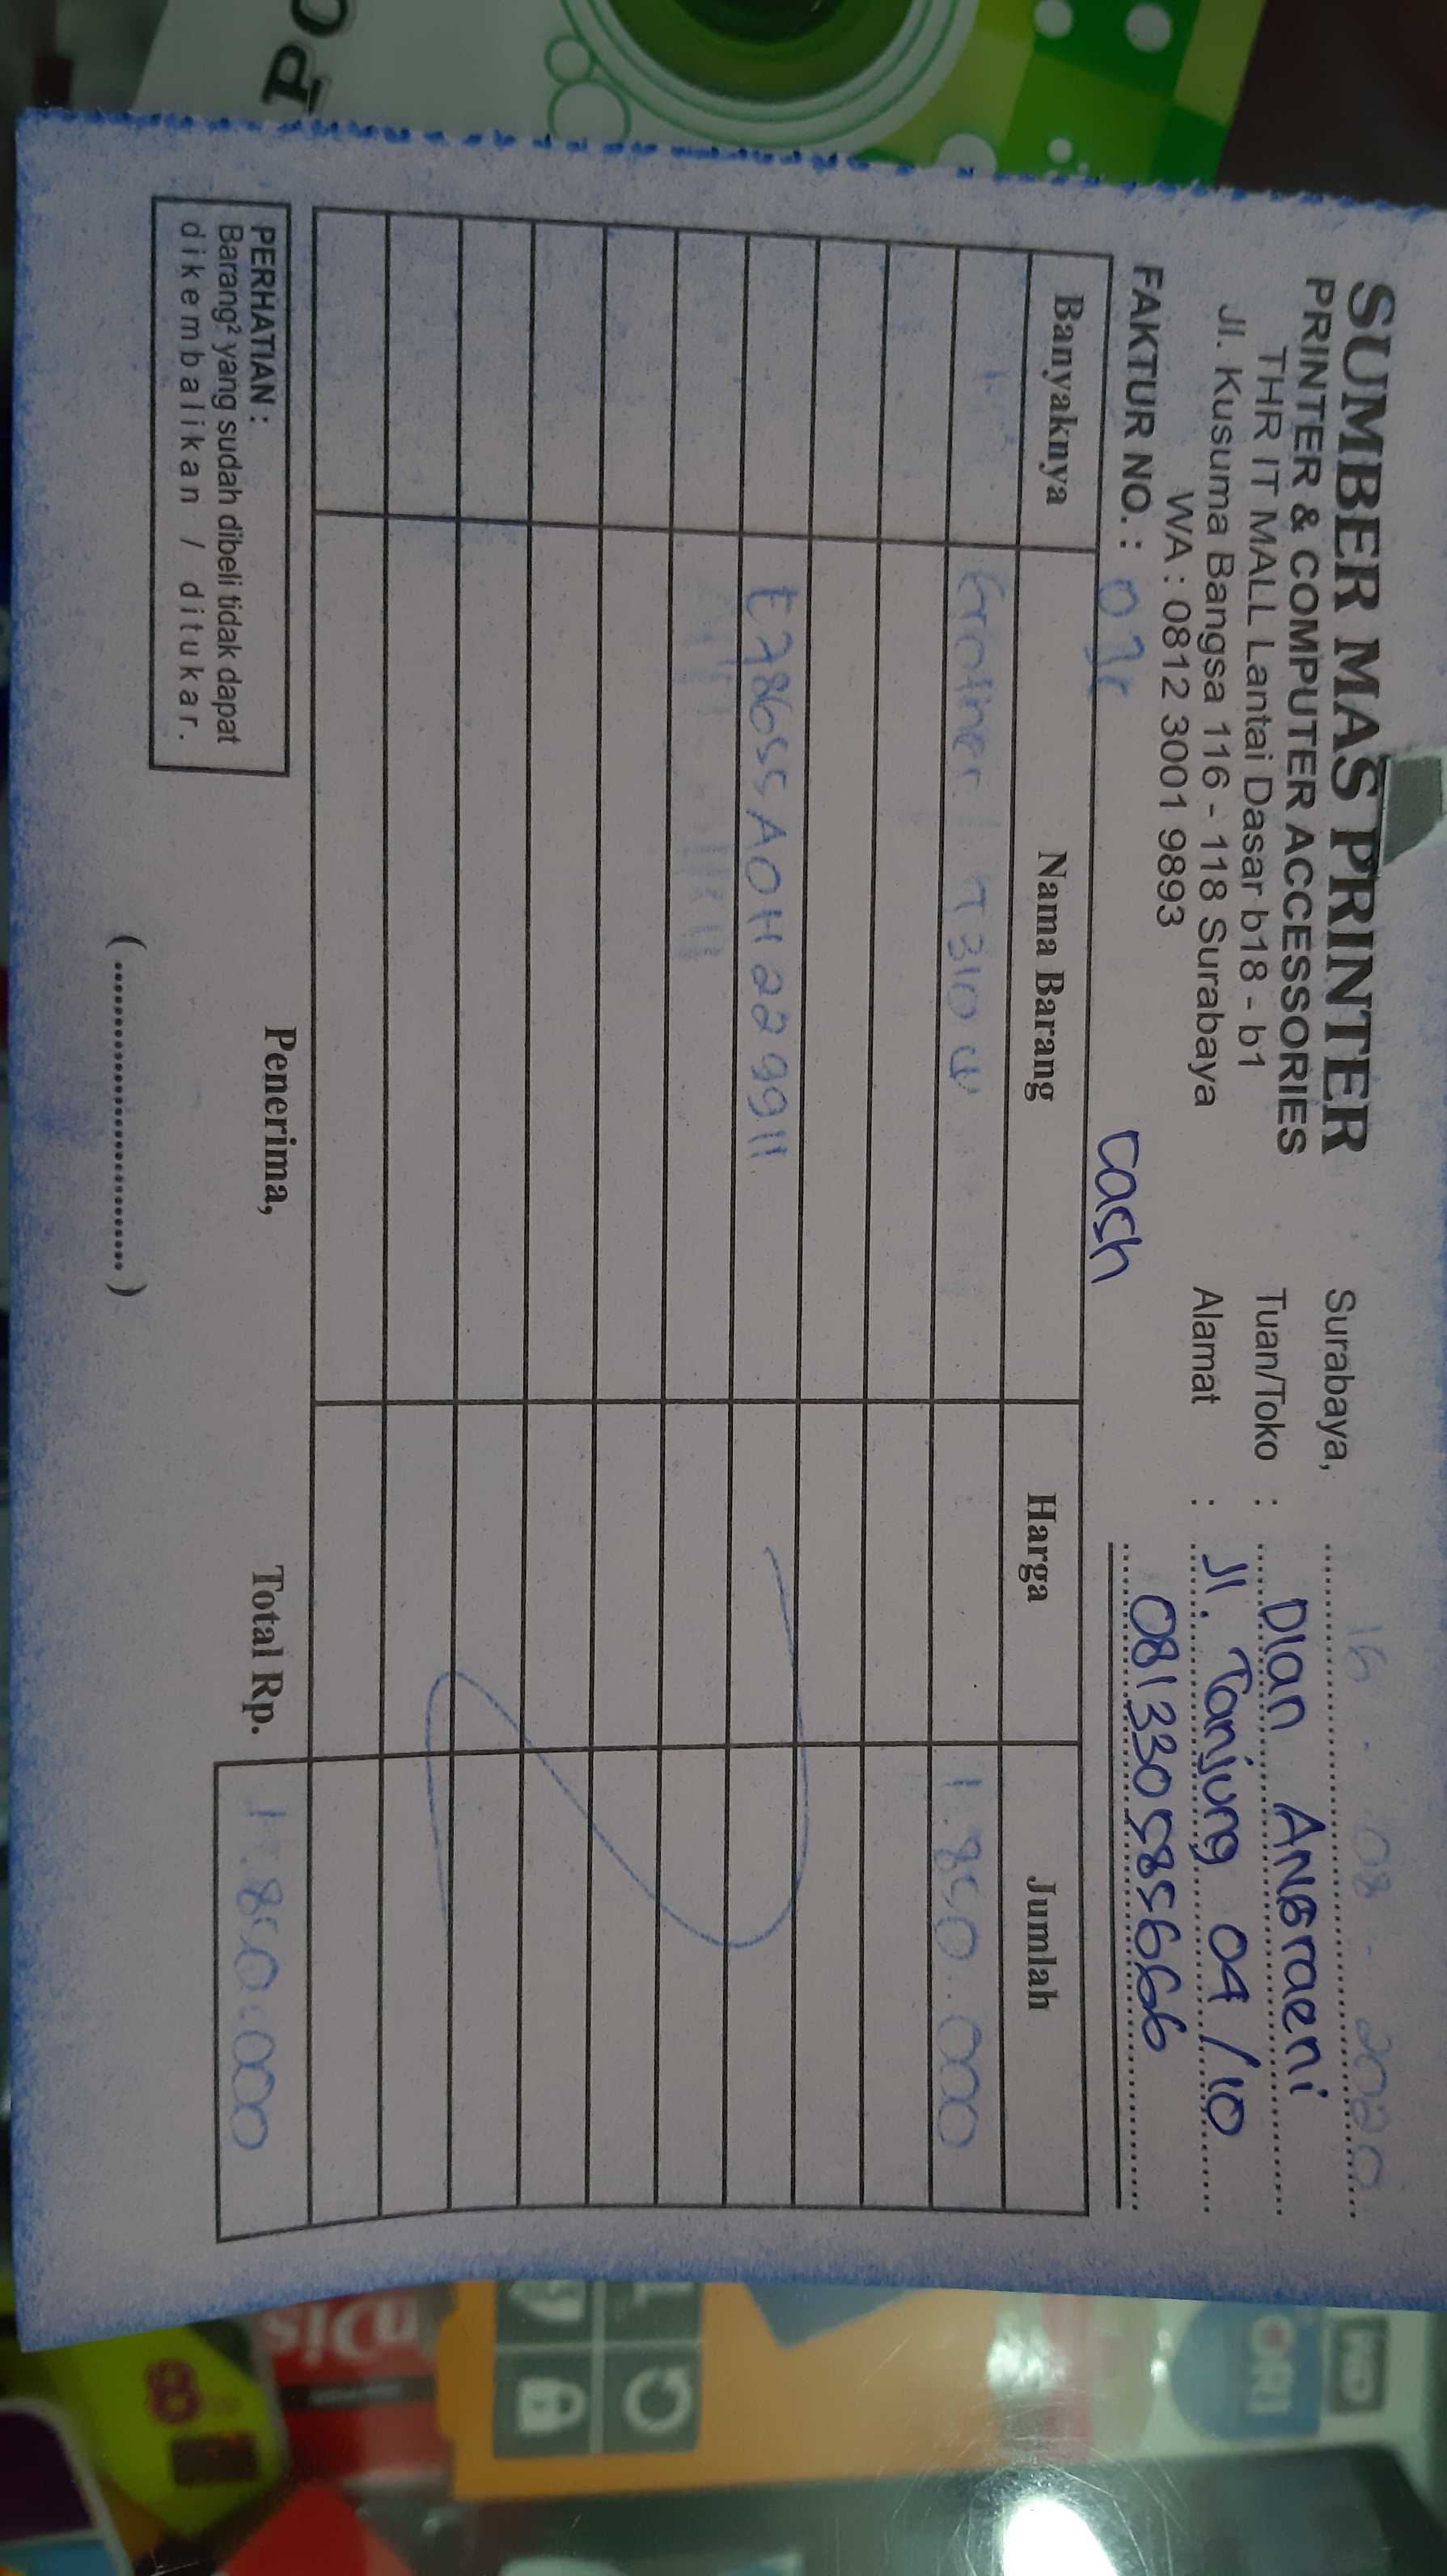 SUMBER MAS PRINTER
PRINTER & COMPUTER ACCESSORIES
THR IT MALL Lantai Dasar b18 - b1
Jl. Kusuma Bangsa 116 - 118 Surabaya
WA : 0812 3001 9893
FAKTUR NO. :
cash
Surabaya, 08 - 2020
Tuan/Toko : Dian ANGraeni
Alamat : Jl. Tanjung 04 / 10
081330585666
Banyaknya Nama Barang Harga Jumlah
1 T310 W 1.850.000
E78655A0H229911
PERHATIAN :
Barang² yang sudah dibeli tidak dapat
dikembalikan / ditukar.
Penerima,
Total Rp. 1.850.000
(........................)
HD
ORI